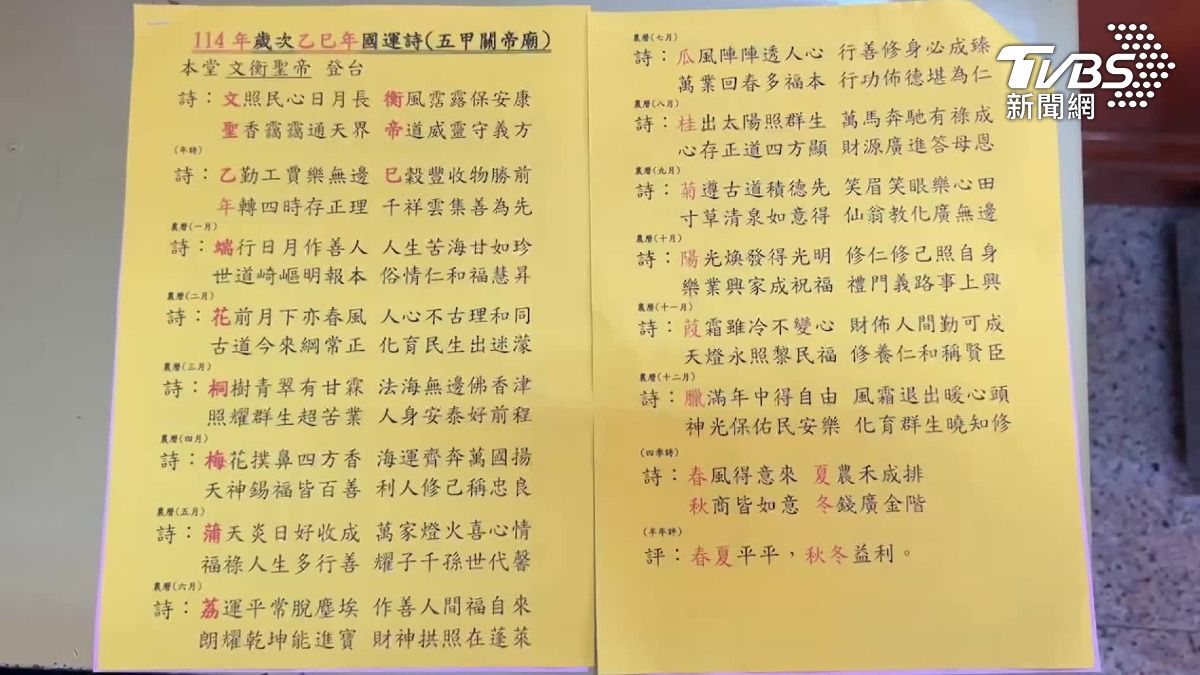 114年歲次乙巳年國運詩(五甲關帝廟)
本堂 文衡聖帝 登台
詩：文照民心日月長 衡風霑露保安康
聖香靄靄通天界 帝道威靈守義方
(年詩)
詩：乙勤工賈樂無邊 巳穀豐收物勝前
年轉四時存正理 千祥雲集善為先
農曆(一月)
詩：端行日月作善人 人生苦海甘如珍
世道崎嶇明報本 俗情仁和福慧昇
農曆(二月)
詩：花前月下亦春風 人心不古理和同
古道今來綱常正 化育民生出迷濛
農曆(三月)
詩：桐樹青翠有甘霖 法海無邊佛香津
照耀群生超苦業 人身安泰好前程
農曆(四月)
詩：梅花撲鼻四方香 海運齊奔萬國揚
天神錫福皆百善 利人修己稱忠良
農曆(五月)
詩：蒲天炎日好收成 萬家燈火喜心情
福祿人生多行善 耀子千孫世代馨
農曆(六月)
詩：荔運平常脫塵埃 作善人間福自來
朗耀乾坤能進寶 財神拱照在蓬萊
農曆(七月)
詩：瓜風陣陣透人心 行善修身必成臻
萬業回春多福本 行功佈德堪為仁
農曆(八月)
詩：桂出太陽照群生 萬馬奔馳有祿成
心存正道四方顯 財源廣進答母恩
農曆(九月)
詩：菊遵古道積德先 笑眉笑眼樂心田
寸草清泉如意得 仙翁教化廣無邊
農曆(十月)
詩：陽光煥發得光明 修仁修己照自身
樂業興家成祝福 禮門義路事上興
農曆(十一月)
詩：葭霜雖冷不變心 財佈人間勤可成
天燈永照黎民福 修養仁和稱賢臣
農曆(十二月)
詩：臘滿年中得自由 風霜退出暖心頭
神光保佑民安樂 化育群生曉知修
(四季詩)
詩：春風得意來 夏農禾成排
秋商皆如意 冬錢廣金階
(半年評)
評：春夏平平，秋冬益利。
TVBS
新聞網